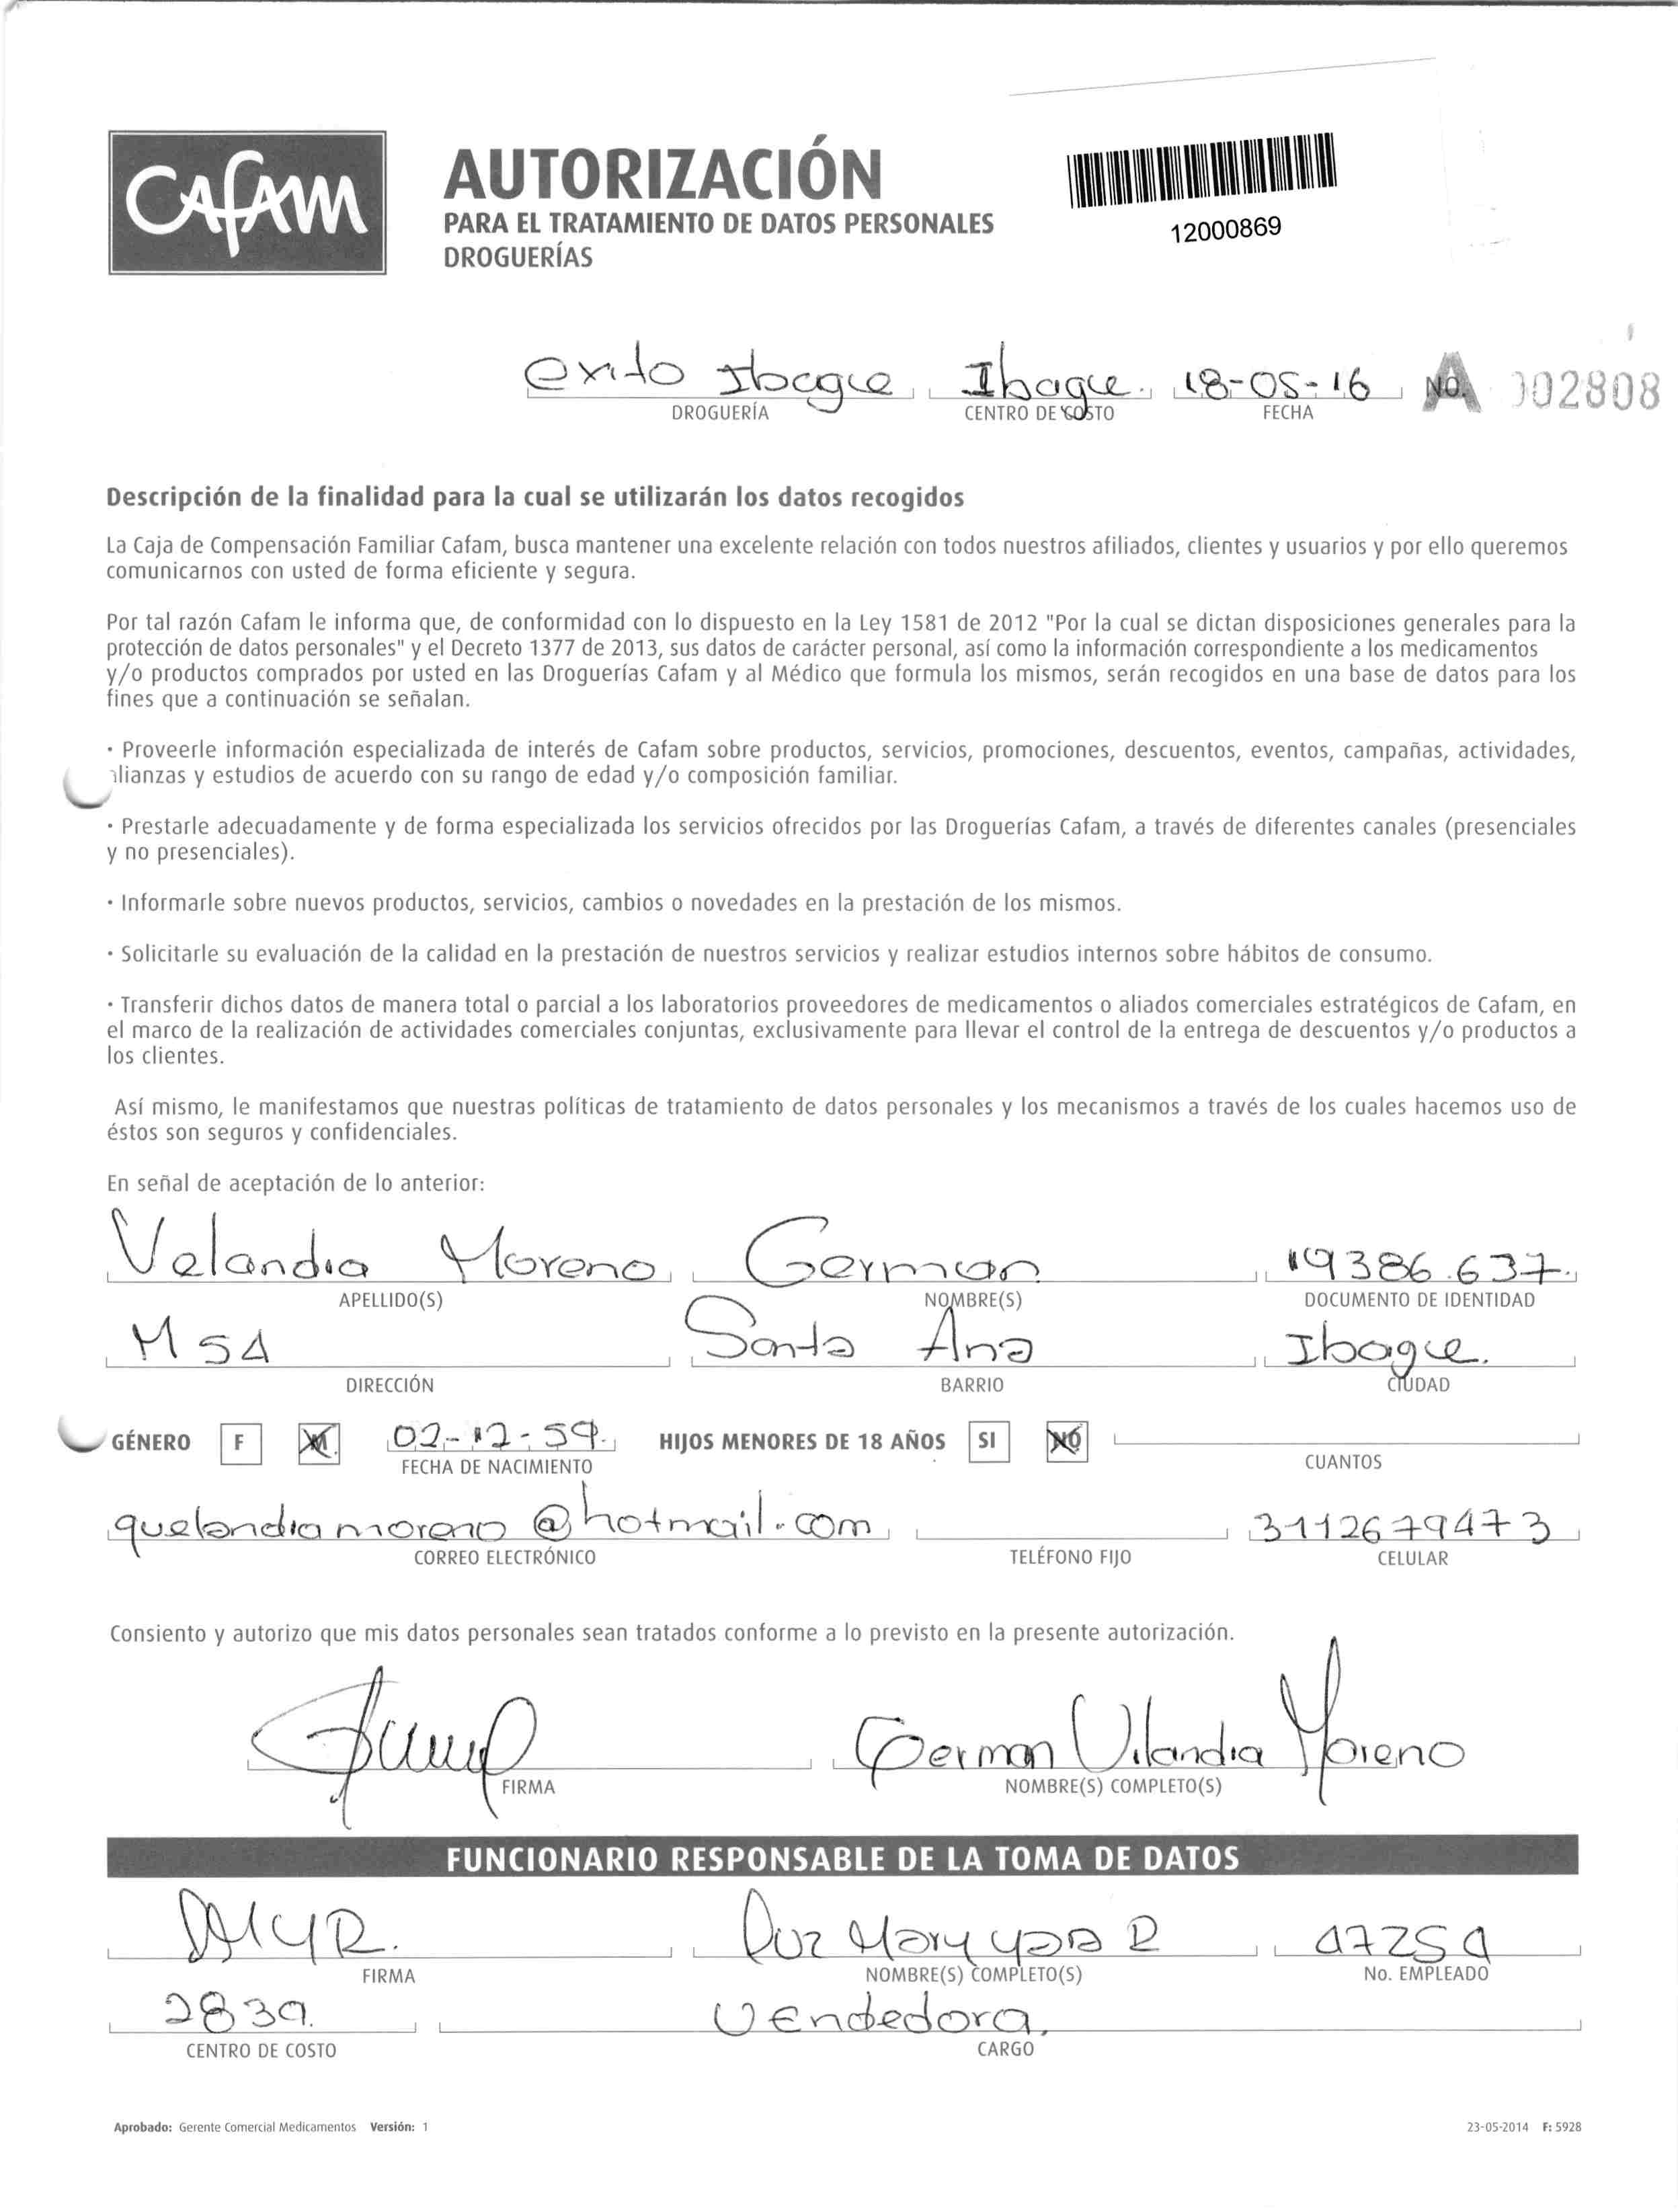 CAFAM
AUTORIZACIÓN
PARA EL TRATAMIENTO DE DATOS PERSONALES
DROGUERÍAS
12000869
exito Ibague Ibague 18-05-16 No. A 002808
DROGUERÍA CENTRO DE COSTO FECHA
Descripción de la finalidad para la cual se utilizarán los datos recogidos
La Caja de Compensación Familiar Cafam, busca mantener una excelente relación con todos nuestros afiliados, clientes y usuarios y por ello queremos
comunicarnos con usted de forma eficiente y segura.
Por tal razón Cafam le informa que, de conformidad con lo dispuesto en la Ley 1581 de 2012 "Por la cual se dictan disposiciones generales para la
protección de datos personales" y el Decreto 1377 de 2013, sus datos de carácter personal, así como la información correspondiente a los medicamentos
y/o productos comprados por usted en las Droguerías Cafam y al Médico que formula los mismos, serán recogidos en una base de datos para los
fines que a continuación se señalan.
· Proveerle información especializada de interés de Cafam sobre productos, servicios, promociones, descuentos, eventos, campañas, actividades,
alianzas y estudios de acuerdo con su rango de edad y/o composición familiar.
· Prestarle adecuadamente y de forma especializada los servicios ofrecidos por las Droguerías Cafam, a través de diferentes canales (presenciales
y no presenciales).
· Informarle sobre nuevos productos, servicios, cambios o novedades en la prestación de los mismos.
· Solicitarle su evaluación de la calidad en la prestación de nuestros servicios y realizar estudios internos sobre hábitos de consumo.
· Transferir dichos datos de manera total o parcial a los laboratorios proveedores de medicamentos o aliados comerciales estratégicos de Cafam, en
el marco de la realización de actividades comerciales conjuntas, exclusivamente para llevar el control de la entrega de descuentos y/o productos a
los clientes.
Así mismo, le manifestamos que nuestras políticas de tratamiento de datos personales y los mecanismos a través de los cuales hacemos uso de
éstos son seguros y confidenciales.
En señal de aceptación de lo anterior:
Velandia Moreno German 19386.637.
APELLIDO(S) NOMBRE(S) DOCUMENTO DE IDENTIDAD
M 5A Santa Ana Ibague.
DIRECCIÓN BARRIO CIUDAD
GÉNERO F M 02-12-59. HIJOS MENORES DE 18 AÑOS SI NO
FECHA DE NACIMIENTO CUANTOS
guelandiamoreno @hotmail.com 3112679473
CORREO ELECTRÓNICO TELÉFONO FIJO CELULAR
Consiento y autorizo que mis datos personales sean tratados conforme a lo previsto en la presente autorización.
German Vilandia Moreno
FIRMA NOMBRE(S) COMPLETO(S)
FUNCIONARIO RESPONSABLE DE LA TOMA DE DATOS
Luz Mary R
FIRMA NOMBRE(S) COMPLETO(S) No. EMPLEADO
2839. Vendedora.
CENTRO DE COSTO CARGO
Aprobado: Gerente Comercial Medicamentos Versión: 1 23-05-2014 F: 5928